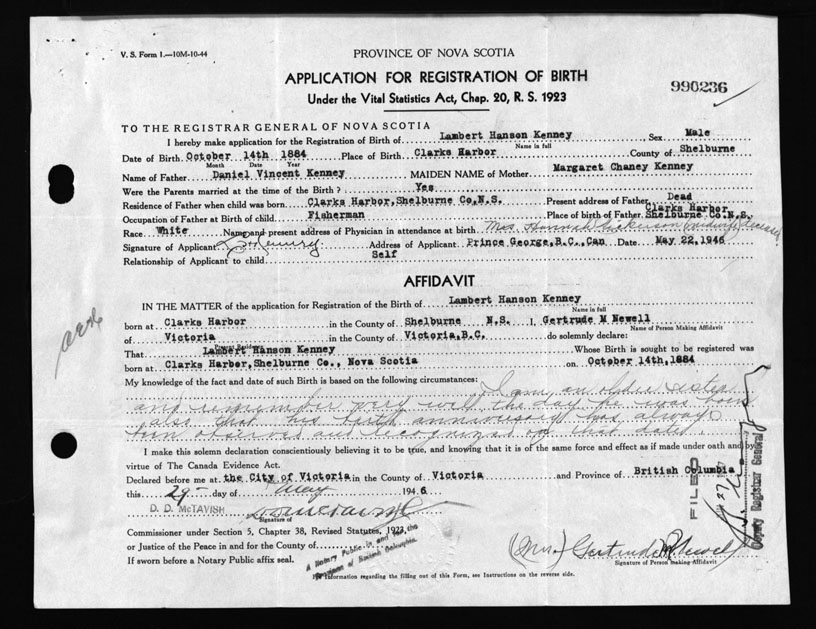 V. S. Form 1.—10M-10-44
PROVINCE OF NOVA SCOTIA
APPLICATION FOR REGISTRATION OF BIRTH
990236
Under the Vital Statistics Act, Chap. 20, R. S. 1923
TO THE REGISTRAR GENERAL OF NOVA SCOTIA
I hereby make application for the Registration of Birth of Lambert Hanson Kenney Sex Male
Name in full
Date of Birth October 14th 1884 Place of Birth Clarks Harbor County of Shelburne
Month Date Year
Name of Father Daniel Vincent Kenney MAIDEN NAME of Mother Margaret Chaney Kenney
Were the Parents married at the time of the Birth? Yes
Residence of Father when child was born Clarks Harbor, Shelburne Co, N.S. Present address of Father Dead
Occupation of Father at Birth of child Fisherman Place of birth of Father Clarks Harbor Shelburne Co. N.S.
Race White Name and present address of Physician in attendance at birth Mrs Hannah (midwife) deceased
Signature of Applicant L H Kenney Address of Applicant Prince George, B.C., Can Date May 22, 1946
Relationship of Applicant to child Self
AFFIDAVIT
IN THE MATTER of the application for Registration of the Birth of Lambert Hanson Kenney
Name in full
born at Clarks Harbor in the County of Shelburne N.S. I, Gertrude M Newell
Name of Person Making Affidavit
of Victoria in the County of Victoria, B.C. do solemnly declare:
That Lambert Hanson Kenney Whose Birth is sought to be registered was
born at Clarks Harbor, Shelburne Co., Nova Scotia on October 14th, 1884
My knowledge of the fact and date of such Birth is based on the following circumstances: I am an older sister
and remember very well the day he was born
also that his birth anniversary has always
been observed and recognized on that date.
I make this solemn declaration conscientiously believing it to be true, and knowing that it is of the same force and effect as if made under oath and by
virtue of The Canada Evidence Act.
Declared before me at the City of Victoria in the County of Victoria and Province of British Columbia
this 29 day of May 1946
D. D. McTAVISH
Signature of
Commissioner under Section 5, Chapter 38, Revised Statutes, 1923,
or Justice of the Peace in and for the County of
A Notary Public in and for the
Province of British Columbia.
If sworn before a Notary Public affix seal.
(Mrs) Gertrude M Newell
Signature of Person making Affidavit
For information regarding the filling out of this Form, see Instructions on the reverse side.
FILED
Deputy Registrar General